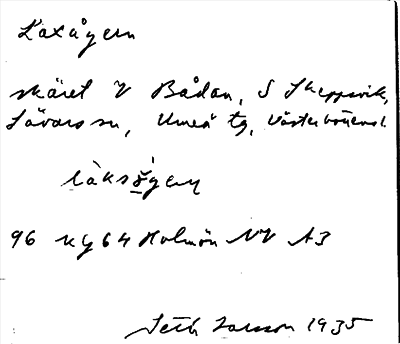 Laxågern
skäret V Bådan, S Skeppsvik,
Sävars sn, Umeå tg, Västerbottens l.
làksǫ̀gεɳ
96 ny 64 Holmön NV A3
Seth Larsson 1935